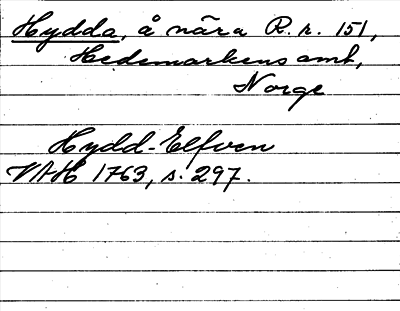 Hydda, å nära R. r. 151,
Hedemarkens amt,
Norge
Hydd-Elfven
VAH 1763, s. 297.